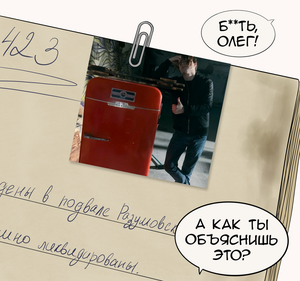 423
Б**ТЬ,
ОЛЕГ!
дены в подвале Разумовск
ино ликвидированы.
А КАК ТЫ
ОБЪЯСНИШЬ
ЭТО?